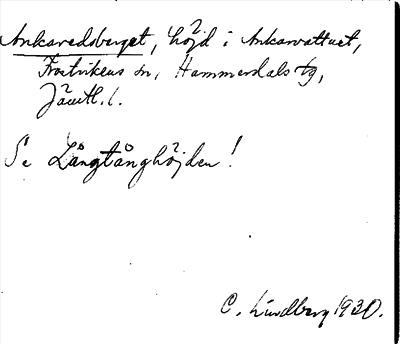 Ankaredsberget, höjd i Ankarvattnet,
Frostvikens sn, Hammerdals tg,
Jämtl. l.
Se Långtånghöjden!
C. Lindberg 1930.